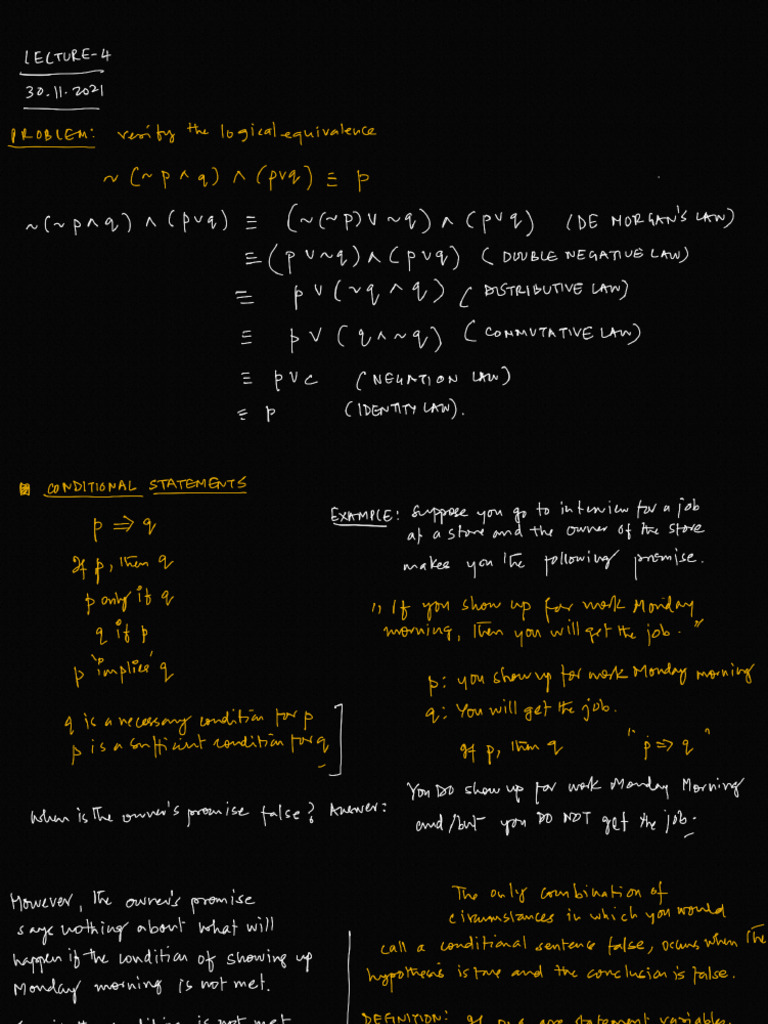 LECTURE-4
30.11.2021
PROBLEM: verify the logical equivalence
~(~p ∧ q) ∧ (p∨q) ≡ p
~(~p∧q) ∧ (p∨q) ≡ (~(~p)∨ ~q) ∧ (p∨q) (DE MORGAN'S LAW)
≡ (p ∨~q) ∧ (p∨q) (DOUBLE NEGATIVE LAW)
≡ p ∨ (~q ∧ q) (DISTRIBUTIVE LAW)
≡ p ∨ (q ∧ ~q) (COMMUTATIVE LAW)
≡ p∨c (NEGATION LAW)
≡ p (IDENTITY LAW).
CONDITIONAL STATEMENTS
p ⇒ q
If p, then q
p only if q
q if p
p 'implies' q
q is a necessary condition for p
p is a sufficient condition for q
EXAMPLE: Suppose you go to interview for a job
at a store and the owner of the store
makes you the following promise.
" If you show up for work Monday
morning, then you will get the job. "
p: you show up for work Monday morning
q: You will get the job.
If p, then q " p ⇒ q "
When is the owner's promise false? Answer: You DO show up for work Monday Morning
and/but you DO NOT get the job.
However, the owner's promise
says nothing about what will
happen if the condition of showing up
Monday morning is not met.
The only combination of
circumstances in which you would
call a conditional sentence false, occurs when the
hypothesis is true and the conclusion is false.
DEFINITION: If are statement variables